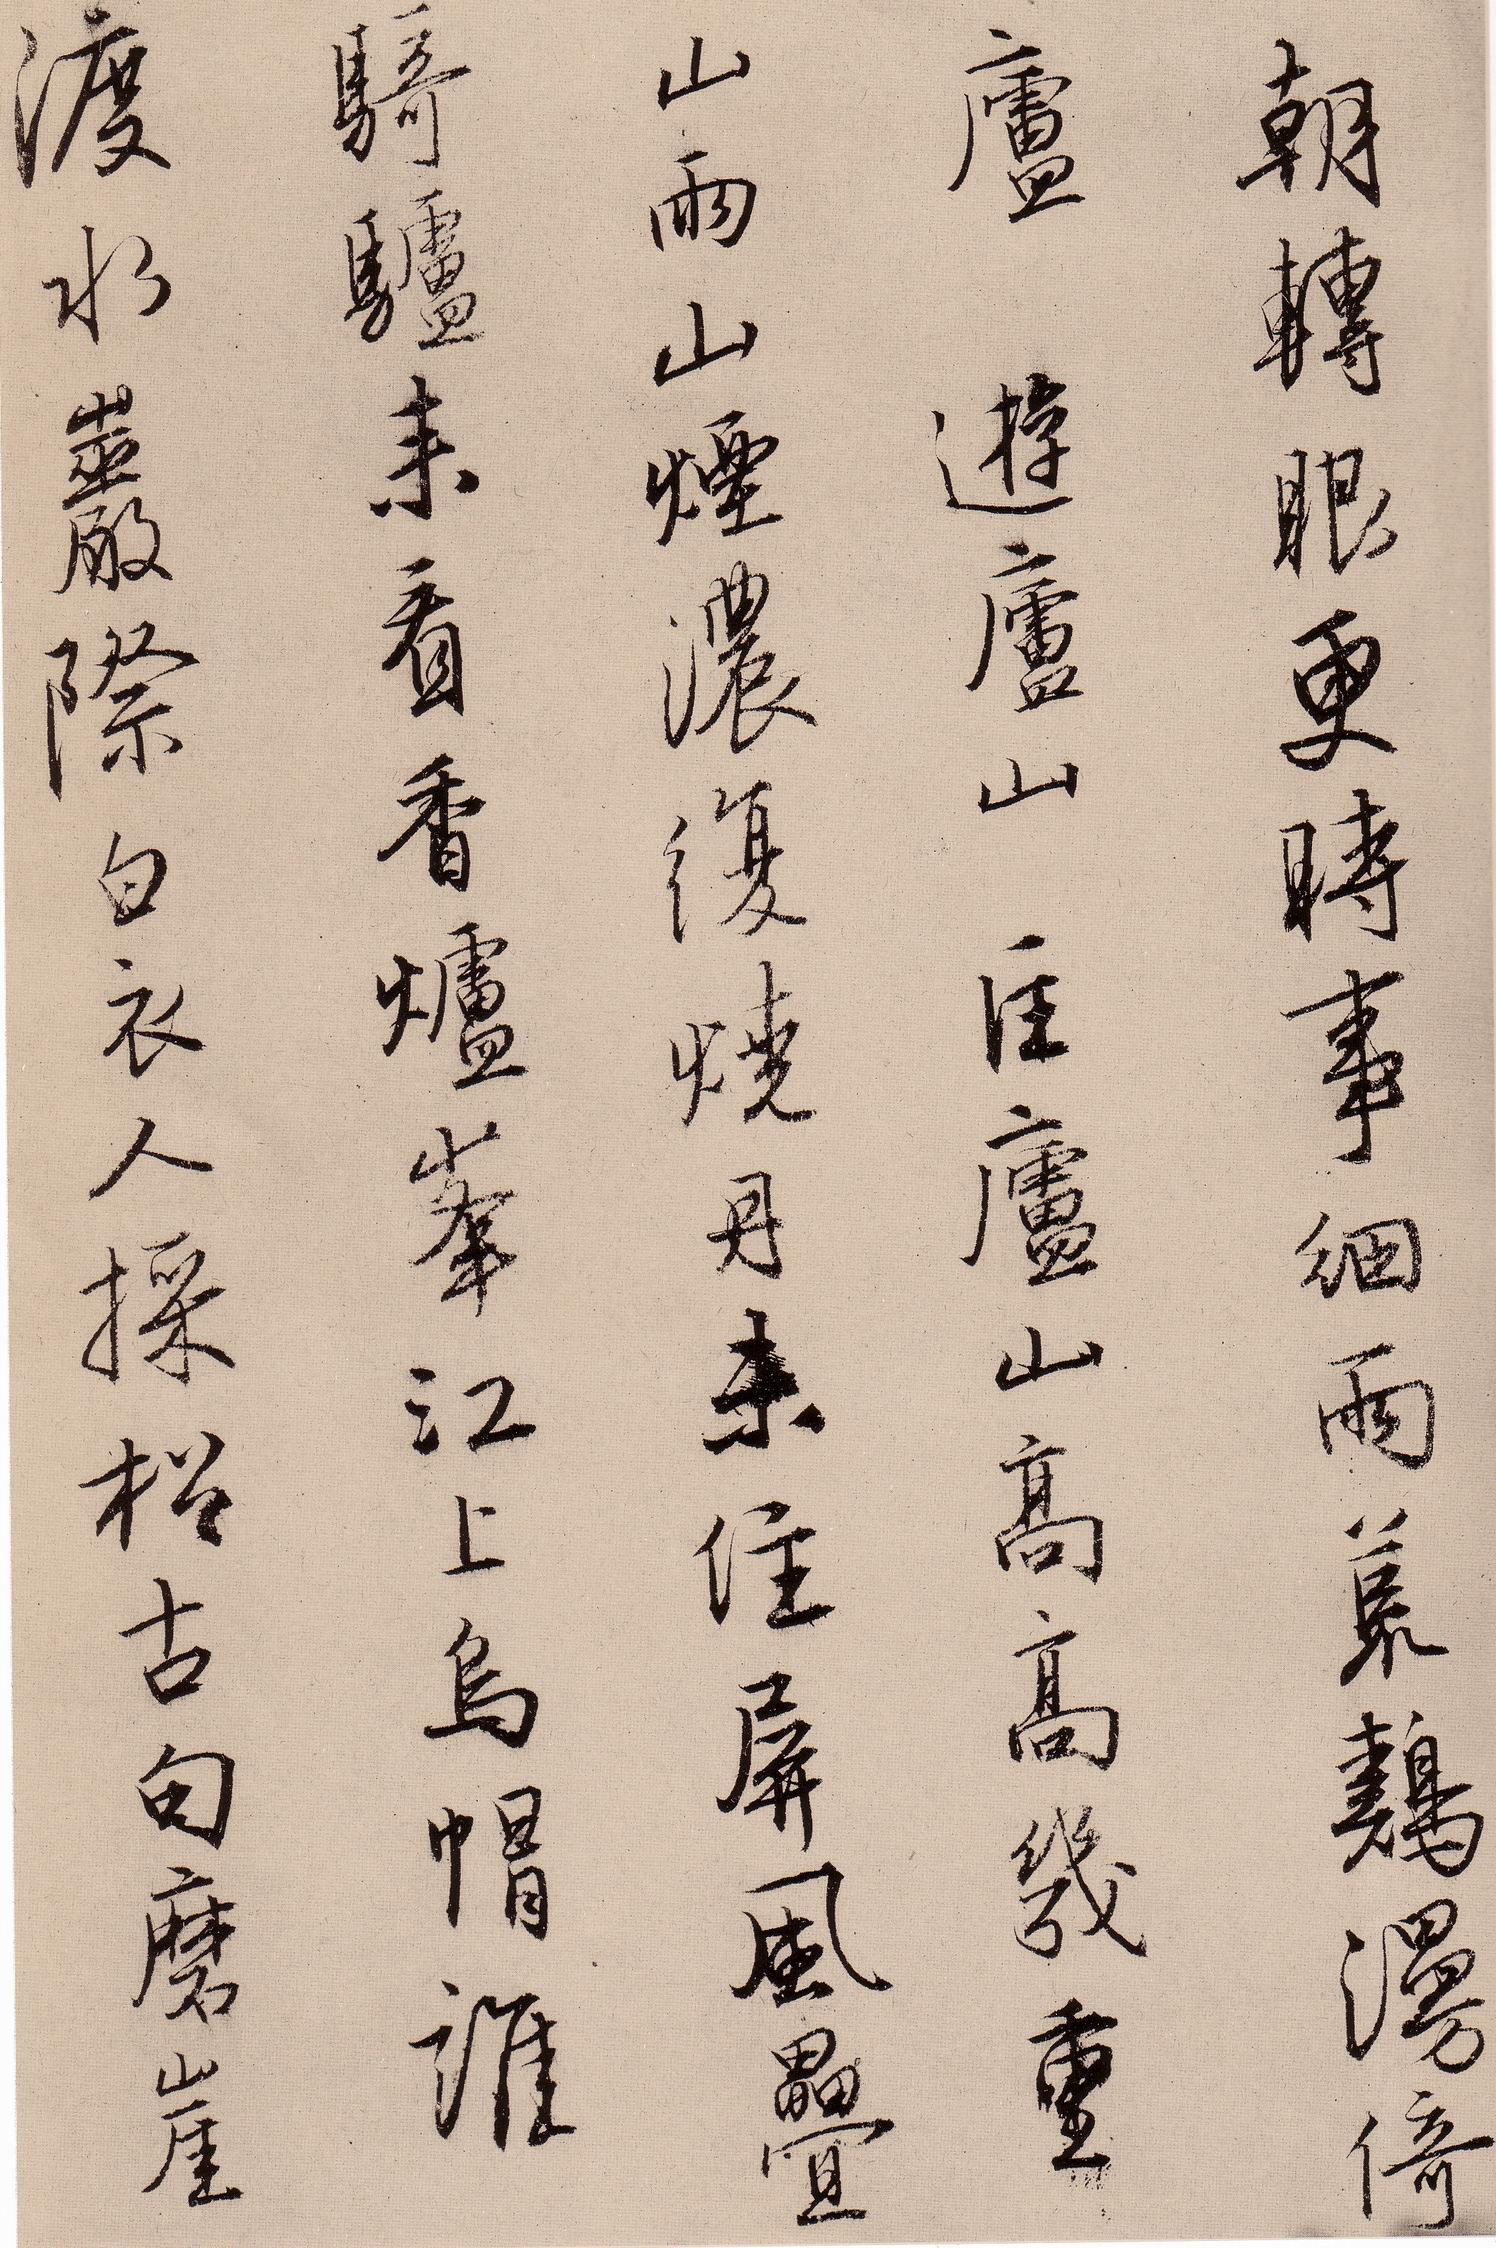 朝轉眼更時事細雨菜鷄漫倚
廬 遊廬山 住廬山高高幾重
山雨山煙濃復燒丹未住屏風疊
騎驢未看香爐峯江上烏帽誰
渡水巖際白衣人採松古句磨崖